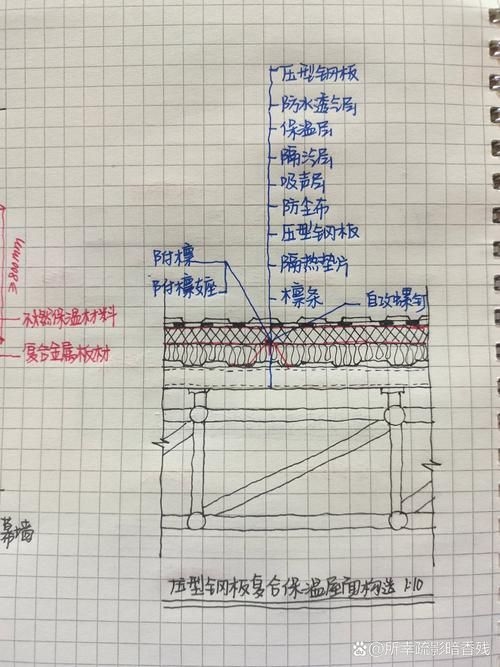 压型钢板
防水透气层
保温层
隔汽层
吸声层
防尘布
压型钢板
隔热垫片
檩条
附檩
附檩支座
自攻螺钉
≥800mm
不燃保温材料
复合金属板材
幕墙
压型钢板复合保温屋面构造 1:10
所幸疏影暗香残